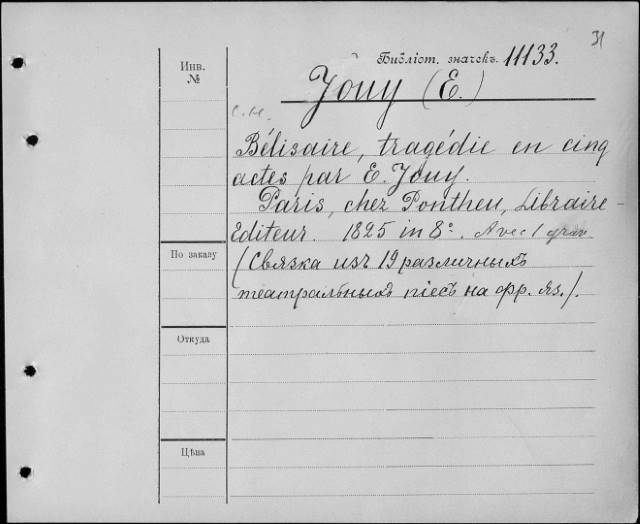 31
Библіот. значекъ. 11133.
Инв.
№
Jouy (E.)
Bélisaire, tragédie en cinq
actes par E. Jouy.
Paris, chez Pontheu, Libraire-
Editeur. 1825 in 8º. Avec 1 grav
По заказу
(Связка изъ 19 различныхъ
театральныхъ піесъ на фр. яз.).
Откуда
Цѣна